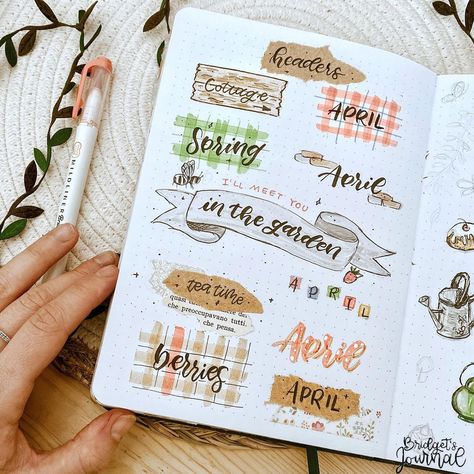 headers
Cottage
APRIL
Spring
April
I'LL MEET YOU
in the garden
tea time
quasi tutti
che preoccupavano tutti.
che che pensa.
APRIL
April
berries
APRIL
MILDLINER
Bridget's
Journal